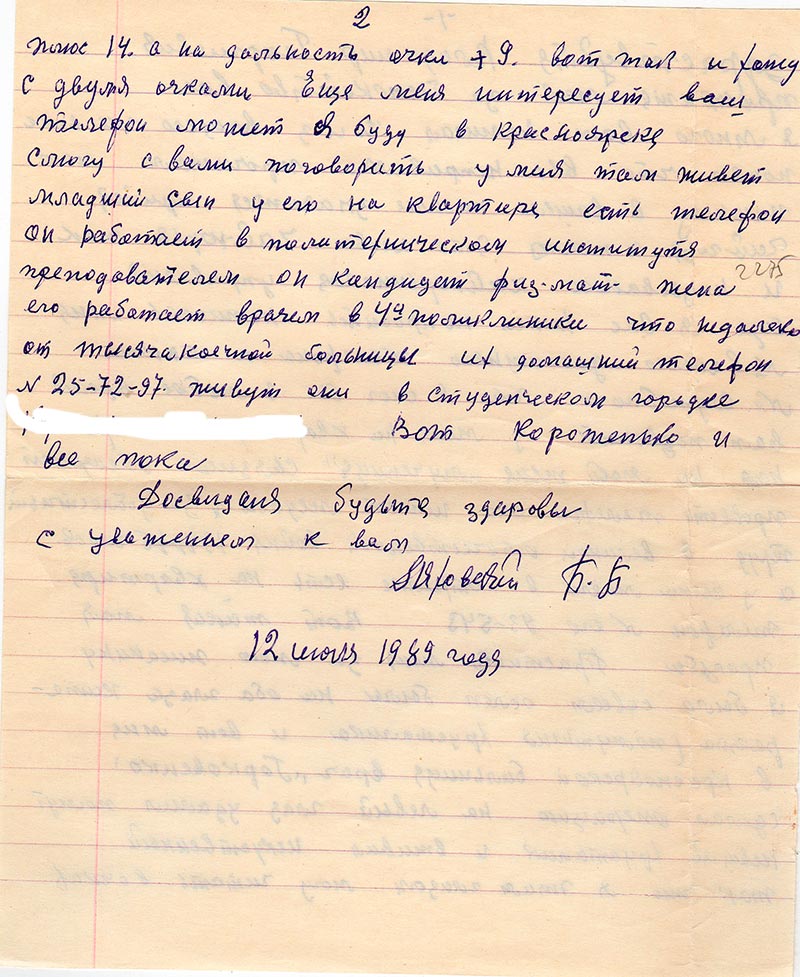 2
плюс 14. а на дальность очки +9. вот так и хожу
с двумя очками Еще меня интересует ваш
телефон может Я буду в Красноярске
Смогу с вами поговорить у меня там живет
младший сын у его на квартире есть телефон
он работает в политерническом институтя
преподователем он кандидет физ-мат- жена
2275
его работает врачем в 4й поликлиники что недалеко
от тысячакоечной больницы их домашний телефон
N 25-72-97. живут они в студенческом городке
Вот Короженько и
все пока
Досвиданя будьте здоровы
с уважением к вам
Б. Б
12 июля 1989 года